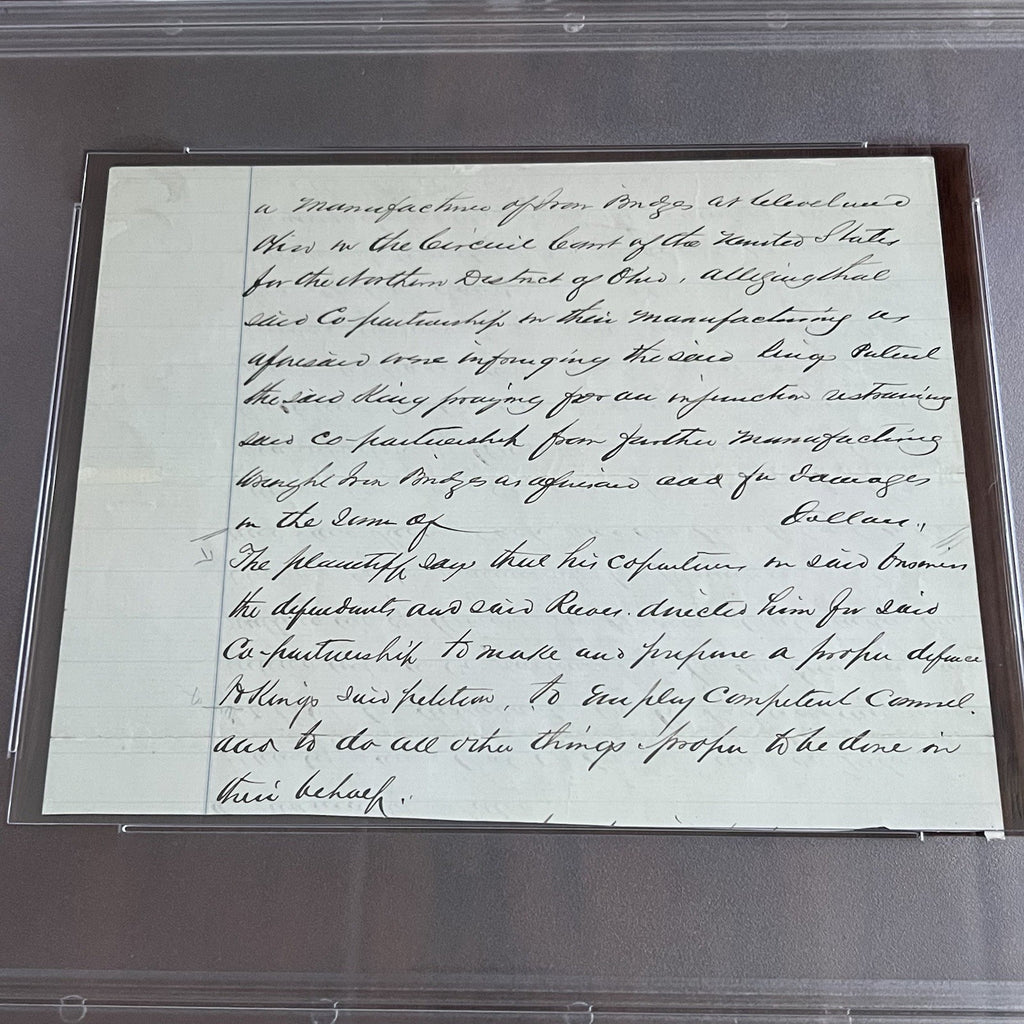 a Manufacturer of Iron Bridges at Cleveland
Ohio in the Circuit Court of the United States
for the Northern District of Ohio, alleging that
said Co-partnership in their manufacturing as
aforesaid were infringing the said King Patent
the said King praying for an injunction restraining
said co-partnership from further manufacturing
Wrought Iron Bridges as aforesaid and for damages
in the sum of Dollars,,
The plaintiff says that his copartners in said business
the defendants and said Reeves. directed him for said
Co-partnership to make and prepare a proper defence
to Kings said petition, to employ Competent Counsel.
and to do all other things proper to be done in
their behalf.